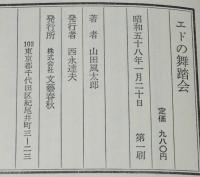 エドの舞踏会
定価 九八〇円
昭和五十八年一月二十日 第一刷
著者 山田風太郎
発行者 西永達夫
発行所 株式会社 文藝春秋
102 東京都千代田区紀尾井町三―二三